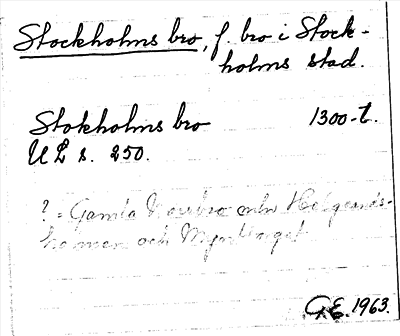 Stockholms bro, f. bro i Stock-
holms stad.
Stokholms bro 1300-t.
UL s. 250.
? = Gamla Norrbro mln Helgeands-
holmen och Mynttorget
G.E. 1963.